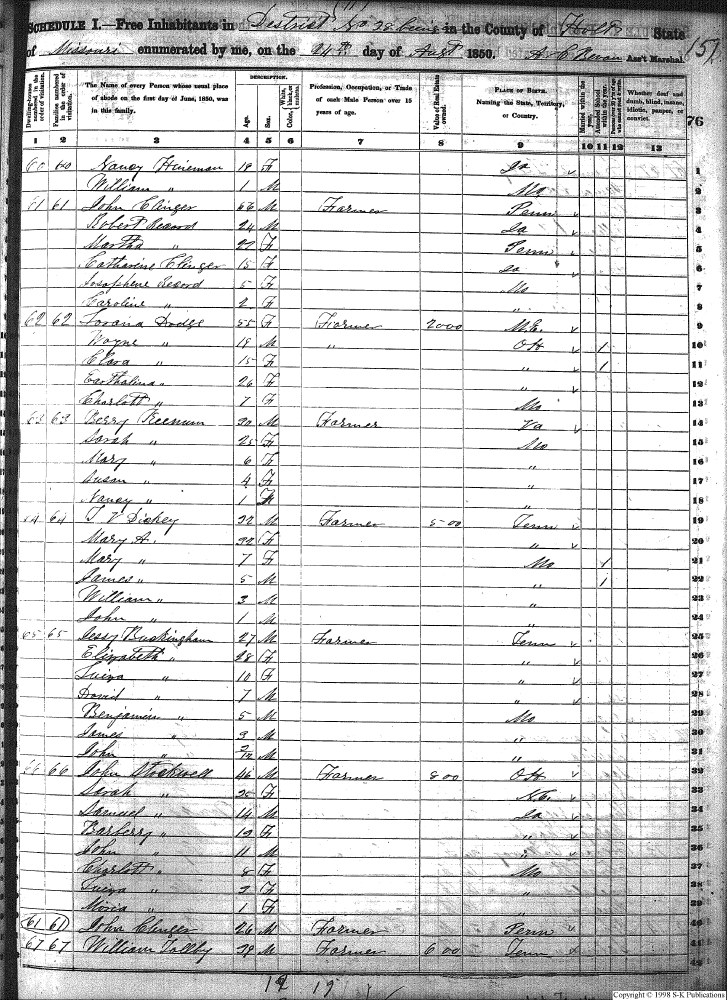 SCHEDULE I.—Free Inhabitants in District No 28 being in the County of Holt State
of Missouri enumerated by me, on the 24th day of Augt 1850. Ass't Marshal.
151
76
DESCRIPTION.
Dwelling-houses numbered in the order of visitation.
Families numbered in the order of visitation.
The Name of every Person whose usual place of abode on the first day of June, 1850, was in this family.
Age.
Sex.
White, black, or mulatto. Color,
Profession, Occupation, or Trade of each Male Person over 15 years of age.
Value of Real Estate owned.
PLACE OF BIRTH. Naming the State, Territory, or Country.
Married within the year.
Attended School within the year.
Whether deaf and dumb, blind, insane, idiotic, pauper, or convict.
1 2 3 4 5 6 7 8 9 10 11 12 13
60 60 Nancy Hineman 18 F Ia 1
William " 1 M Mo 2
61 61 John Clinger 66 M Farmer Penn 3
Robert Record 24 M Ia 4
Martha " 27 F Penn 5
Catharine Clinger 15 F Ia 6
Josephene Record 5 F Mo 7
Caroline " 2 F " 8
62 62 Lorana Dodge 55 F Farmer 2000 9
Wayne " 18 M " OH 1 10
Clara " 15 F " 1 11
" 26 F " 12
Charlott " 7 F Mo 13
63 63 Berry 30 M Farmer Va 14
Sarah " 25 F Mo 15
Mary " 6 F " 16
Susan " 4 F " 17
Nancy " 1 F " 18
64 64 T V Dickey 32 M Farmer 500 Tenn 19
Mary A. 32 F " 20
Mary " 7 F Mo 1 21
James " 5 M " 1 22
William " 3 M " 23
John " 1 M 24
65 65 Jessy Buckingham 27 M Farmer Tenn 25
Elizabeth " 28 F " 26
" 10 F " 27
David " 7 M " 28
Benjamin " 5 M Mo 29
James " 3 M " 30
John " M " 31
66 66 John Stockwell 46 M Farmer 800 OH 32
Sarah " F 33
Samuel " 14 M Ia 34
" F " 35
John " 11 M " 36
Charlott " 8 F Mo 37
" 3 F " 38
" 1 F " 39
61 61 John Clinger 26 M Farmer Penn 40
67 67 William Tallby 39 M Farmer 600 Tenn 41
19
Copyright © 1998 S-K Publications